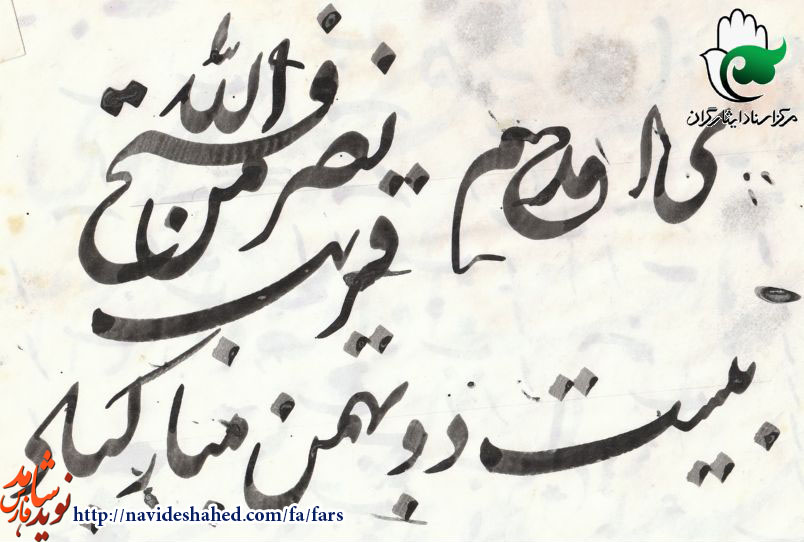 مرکز اسناد ایثارگران
نصر من الله و فتح
قریب
بیست دو بهمن مبارکباد
نوید شاهد فارس
http://navideshahed.com/fa/fars